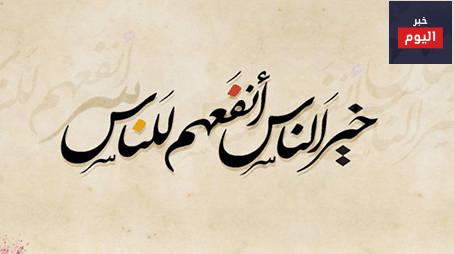 خبر
اليوم
خير الناس أنفعهم للناس